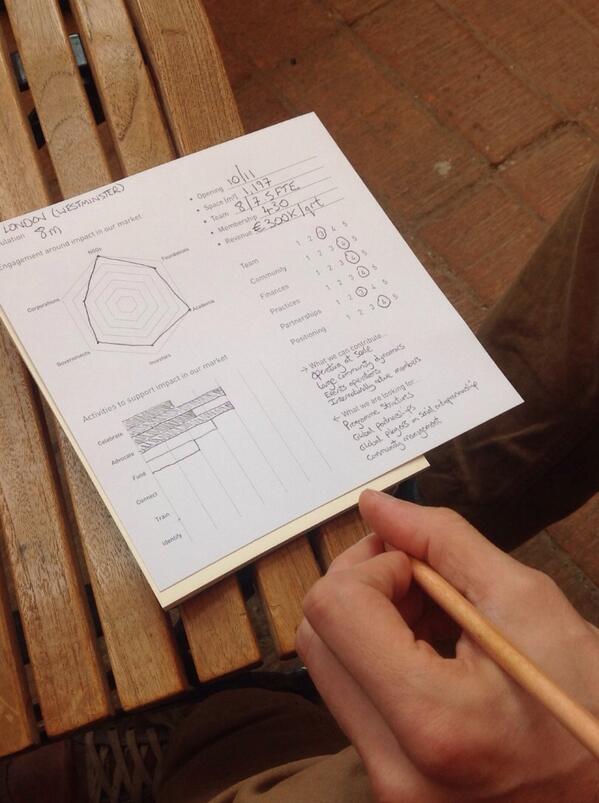 LONDON (WESTMINSTER)
ulation 8m
Engagement around impact in our market
NGOs
Foundations
Academia
Investors
Governments
Corporations
• Opening 10/11
• Space [m²] 1,197
• Team 8/7.5 FTE
• Membership 430
• Revenue €300k/qrt
Team 1 2 3 4 5
Community 1 2 3 4 5
Finances 1 2 3 4 5
Practices 1 2 3 4 5
Partnerships 1 2 3 4 5
Positioning 1 2 3 4 5
Activities to support impact in our market
Celebrate
Advocate
Fund
Connect
Train
Identify
→ What we can contribute...
Operating at scale
Large community dynamics
Events operations
Internationally active members
← What we are looking for...
Programme structures
Global partnerships
Global players in social entrepreneurship
Community management